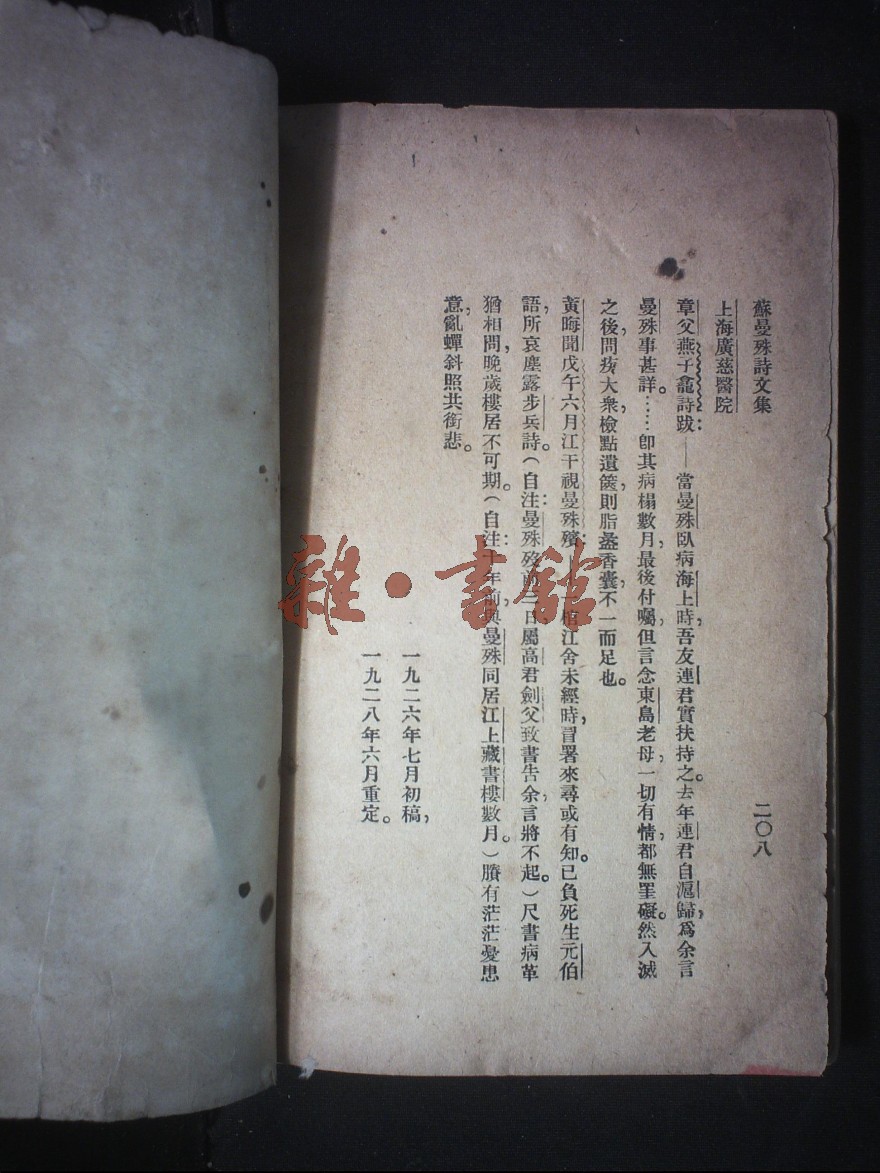 蘇曼殊詩文集
二〇八
上海廣慈醫院
章父燕子龕詩跋:——當曼殊臥病海上時,吾友連君實扶持之。去年連君自滬歸,爲余言
曼殊事甚詳。……卽其病榻數月,最後付囑,但言念東島老母,一切有情,都無罣礙。然入滅
之後,問疾大衆,檢點遺篋,則脂盝香囊,不一而足也。
黃晦聞戊午六月江干視曼殊殯:一棺江舍未經時,冒署來尋或有知。已負死生元伯
語,所哀塵露步兵詩。(自注:曼殊歿前三日屬高君劍父致書告余,言將不起。)尺書病革
猶相問,晚歲樓居不可期。(自注:十年前,與曼殊同居江上藏書樓數月。)賸有茫茫憂患
意,亂蟬斜照共銜悲。
一九二六年七月初稿,
一九二八年六月重定。
雜·書館